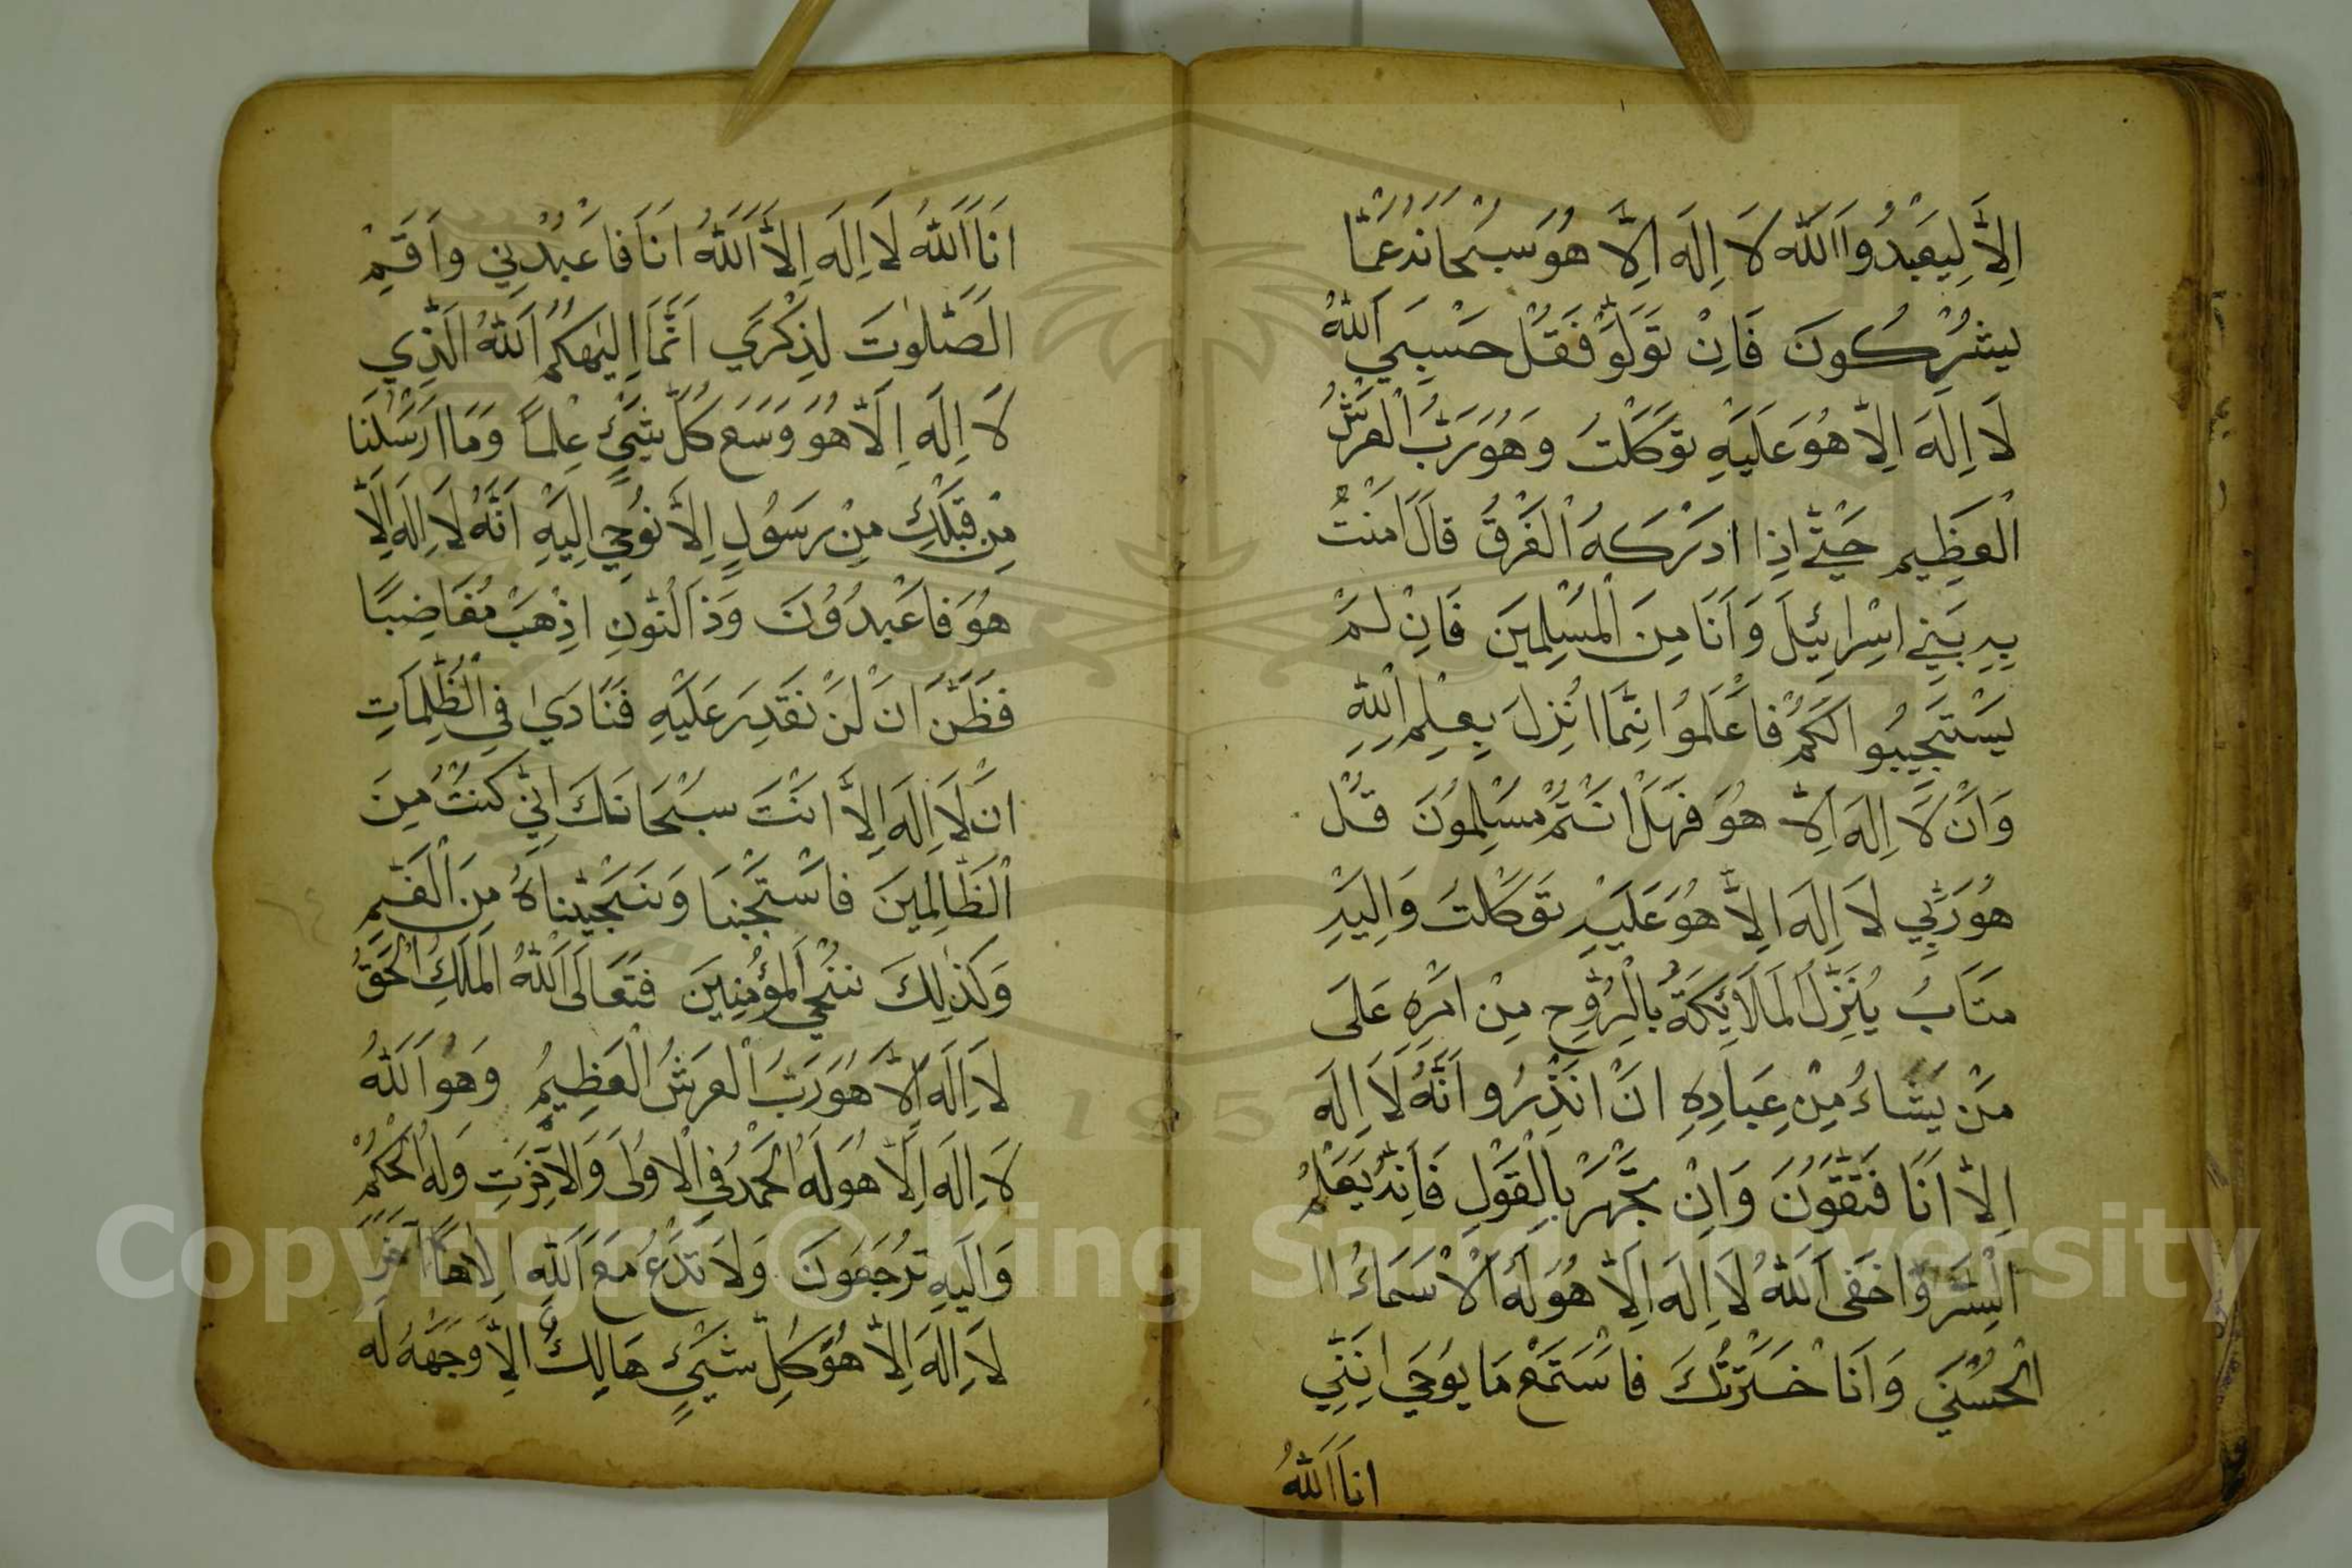 اِلاَّ لِيَعْبُدُوا اَللّٰه لاَ اِلَه اِلاَّ هُوَ سُبْحَانَهُ عَمَّا
يشْرِكُونَ فَاِنْ تَوَلَّوْ فَقُلْ حَسْبِيَ اَللّٰهُ
لاَ اِلَهَ اِلاَّ هُوَ عَلَيْهِ تَوَكَّلْتُ وَهُوَ رَبُّ الْعَرْشِ
الْعَظِيمِ حَتّٰى اِذَا اَدْرَكَهُ الْغَرَقُ قَالَ اَمَنْتُ
بِهِ بَنِي اِسْرَايئِلَ وَاَنَا مِنَ الْمُسْلِمِينَ فَاِنْ لَمْ
يَسْتَجِيبُوا لَكُمْ فَاعْلَمُوا اِنَّمَا اُنْزِلَ بِعِلْمِ اللّٰهِ
وَاَنْ لاَ اِلَهَ اِلاَّ هُوَ فَهَلْ اَنْتُمْ مُسْلِمُونَ قُلْ
هُوَ رَبِّي لاَ اِلَهَ اِلاَّ هُوَ عَلَيْهِ تَوَكَّلْتُ وَاِلَيْهِ
مَتَابُ يُنَزِّلُ الْمَلاَئِكَةُ بِالْرُّوحِ مِنْ اَمْرِهِ عَلَى
مَنْ يَشَاءُ مِنْ عِبَادِهِ اَنْ اَنْذِرُو اَنَّهُ لاَ اِلَه
اِلاَّ اَنَا فَتَّقُونَ وَاِنْ تَجْهَرْ بِالْقَوْلِ فَاِنَّهُ يَعْلَمُ
الْسِّرَّ وَاخْفَى اَللّٰهُ لاَ اِلَهَ اِلاَّ هُوَ لَهُ الْاَسْمَاءُ ١١
الْحُسْنَى وَاَنَا خْتَرْتُكَ فَاسْتَمِعْ مَا يوُحَي اِنَّنِي
اَنَا اَللّٰهُ
اَنَا اَللّٰهُ لاَ اِلَهَ اِلاَّ اَللّٰهُ اَنَا فَاعْبُدْنِي وَاَقِمِ
الصَّلٰوتَ لِذِكْرَي اَنَّمَا اِلَيٰهكُمُ اَللّٰهُ الَّذِي
لاَ اِلَه اِلاَّ هُوَ وَسَعَ كُلَّ شَيْءٍ عِلْماً وَمَا اَرْسَلْنَا
مِنْ قَبْلِكَ مِنْ رَسُولٍ اِلاَّ نُوحِي اِلَيْهِ اَنَّهُ لاَ اِلَه اِلاَّ
هُوَ فَاعْبُدُوُنَ وَذَ النُّونِ اِذْهَبْ مُغَاضِبًا
فَظَنَّ اَنْ لَنْ نَقْدِرَ عَلَيْهِ فَنَادَىٰ فِي الْظُّلِمَاتِ
اَنْ لاَ اِلَه اِلاَّ اَنْتَ سُبْحَانَكَ اِنِّي كُنْتُ مِنَ
الْظَّالِمِينَ فَاسْتَجَبْنَا وَنَجَّيْنَاهُ مِنَ الْغَمِّ
وَكَذٰلِكَ نُنْجِي الْمُؤْمِنِينَ فَتَعَالَى اَللّٰهُ الْمَلِكُ الْحَقُّ
لاَ اِلَه اِلاَّ هُوَ رَبُّ الْعَرْشُ الْعَظِيمُ وَهُوَ اَللّٰهُ
لاَ اِلَه اِلاَّ هُوَ لَهُ الْحَمْدُ فِي الْاُولَى وَالْاَخِرَتِ وَلَهُ الْحُكْمُ
وَاِلَيْهِ تُرْجَعُونَ وَلاَ تَدْعُ مَعَ اَللّٰهِ اِلَاهًا اَخَرَ
لاَ اِلَهَ اِلاَّ هُوَ كُلِّ شَيْءٍ هَالِكٌ اِلاَّ وَجْهَهُ لَهُ
٦٤
Copyright © King Saud University
1957